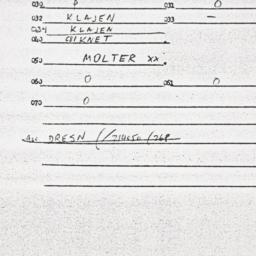 032 P 031 0
032 KLAJEN 033 –
034 KLAJEN
040 CIKNET
050 MOLTER xx.
060 0 061 0
070 0
DRESN